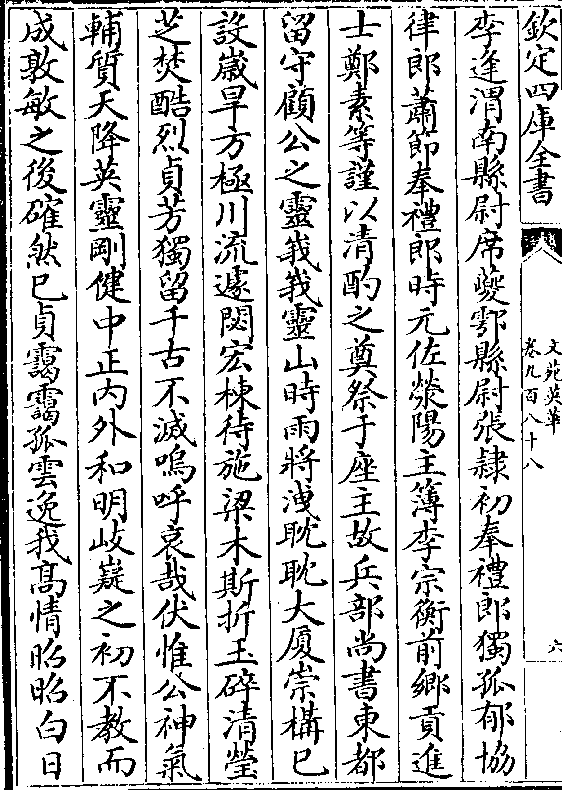 欽定四庫全書
文苑英華
卷九百八十八
六
李逢渭南縣尉席夔鄠縣尉張隸初奉禮郎獨孤郁協
律郎蕭節奉禮郎時元佐滎陽主簿李宗衡前鄉貢進
士鄭素等謹以清酌之奠祭于座主故兵部尚書東都
留守顧公之靈峩峩靈山時雨將洩耽耽大厦崇構已
設嵗旱方極川流遽閟宏棟待施梁木斯折玉碎清瑩
芝焚酷烈貞芳獨留千古不滅嗚呼哀哉伏惟公神氣
輔質天降英靈剛健中正内外和明岐嶷之初不教而
成敦敏之後確然已貞靄靄孤雲逸我髙情昭昭白日